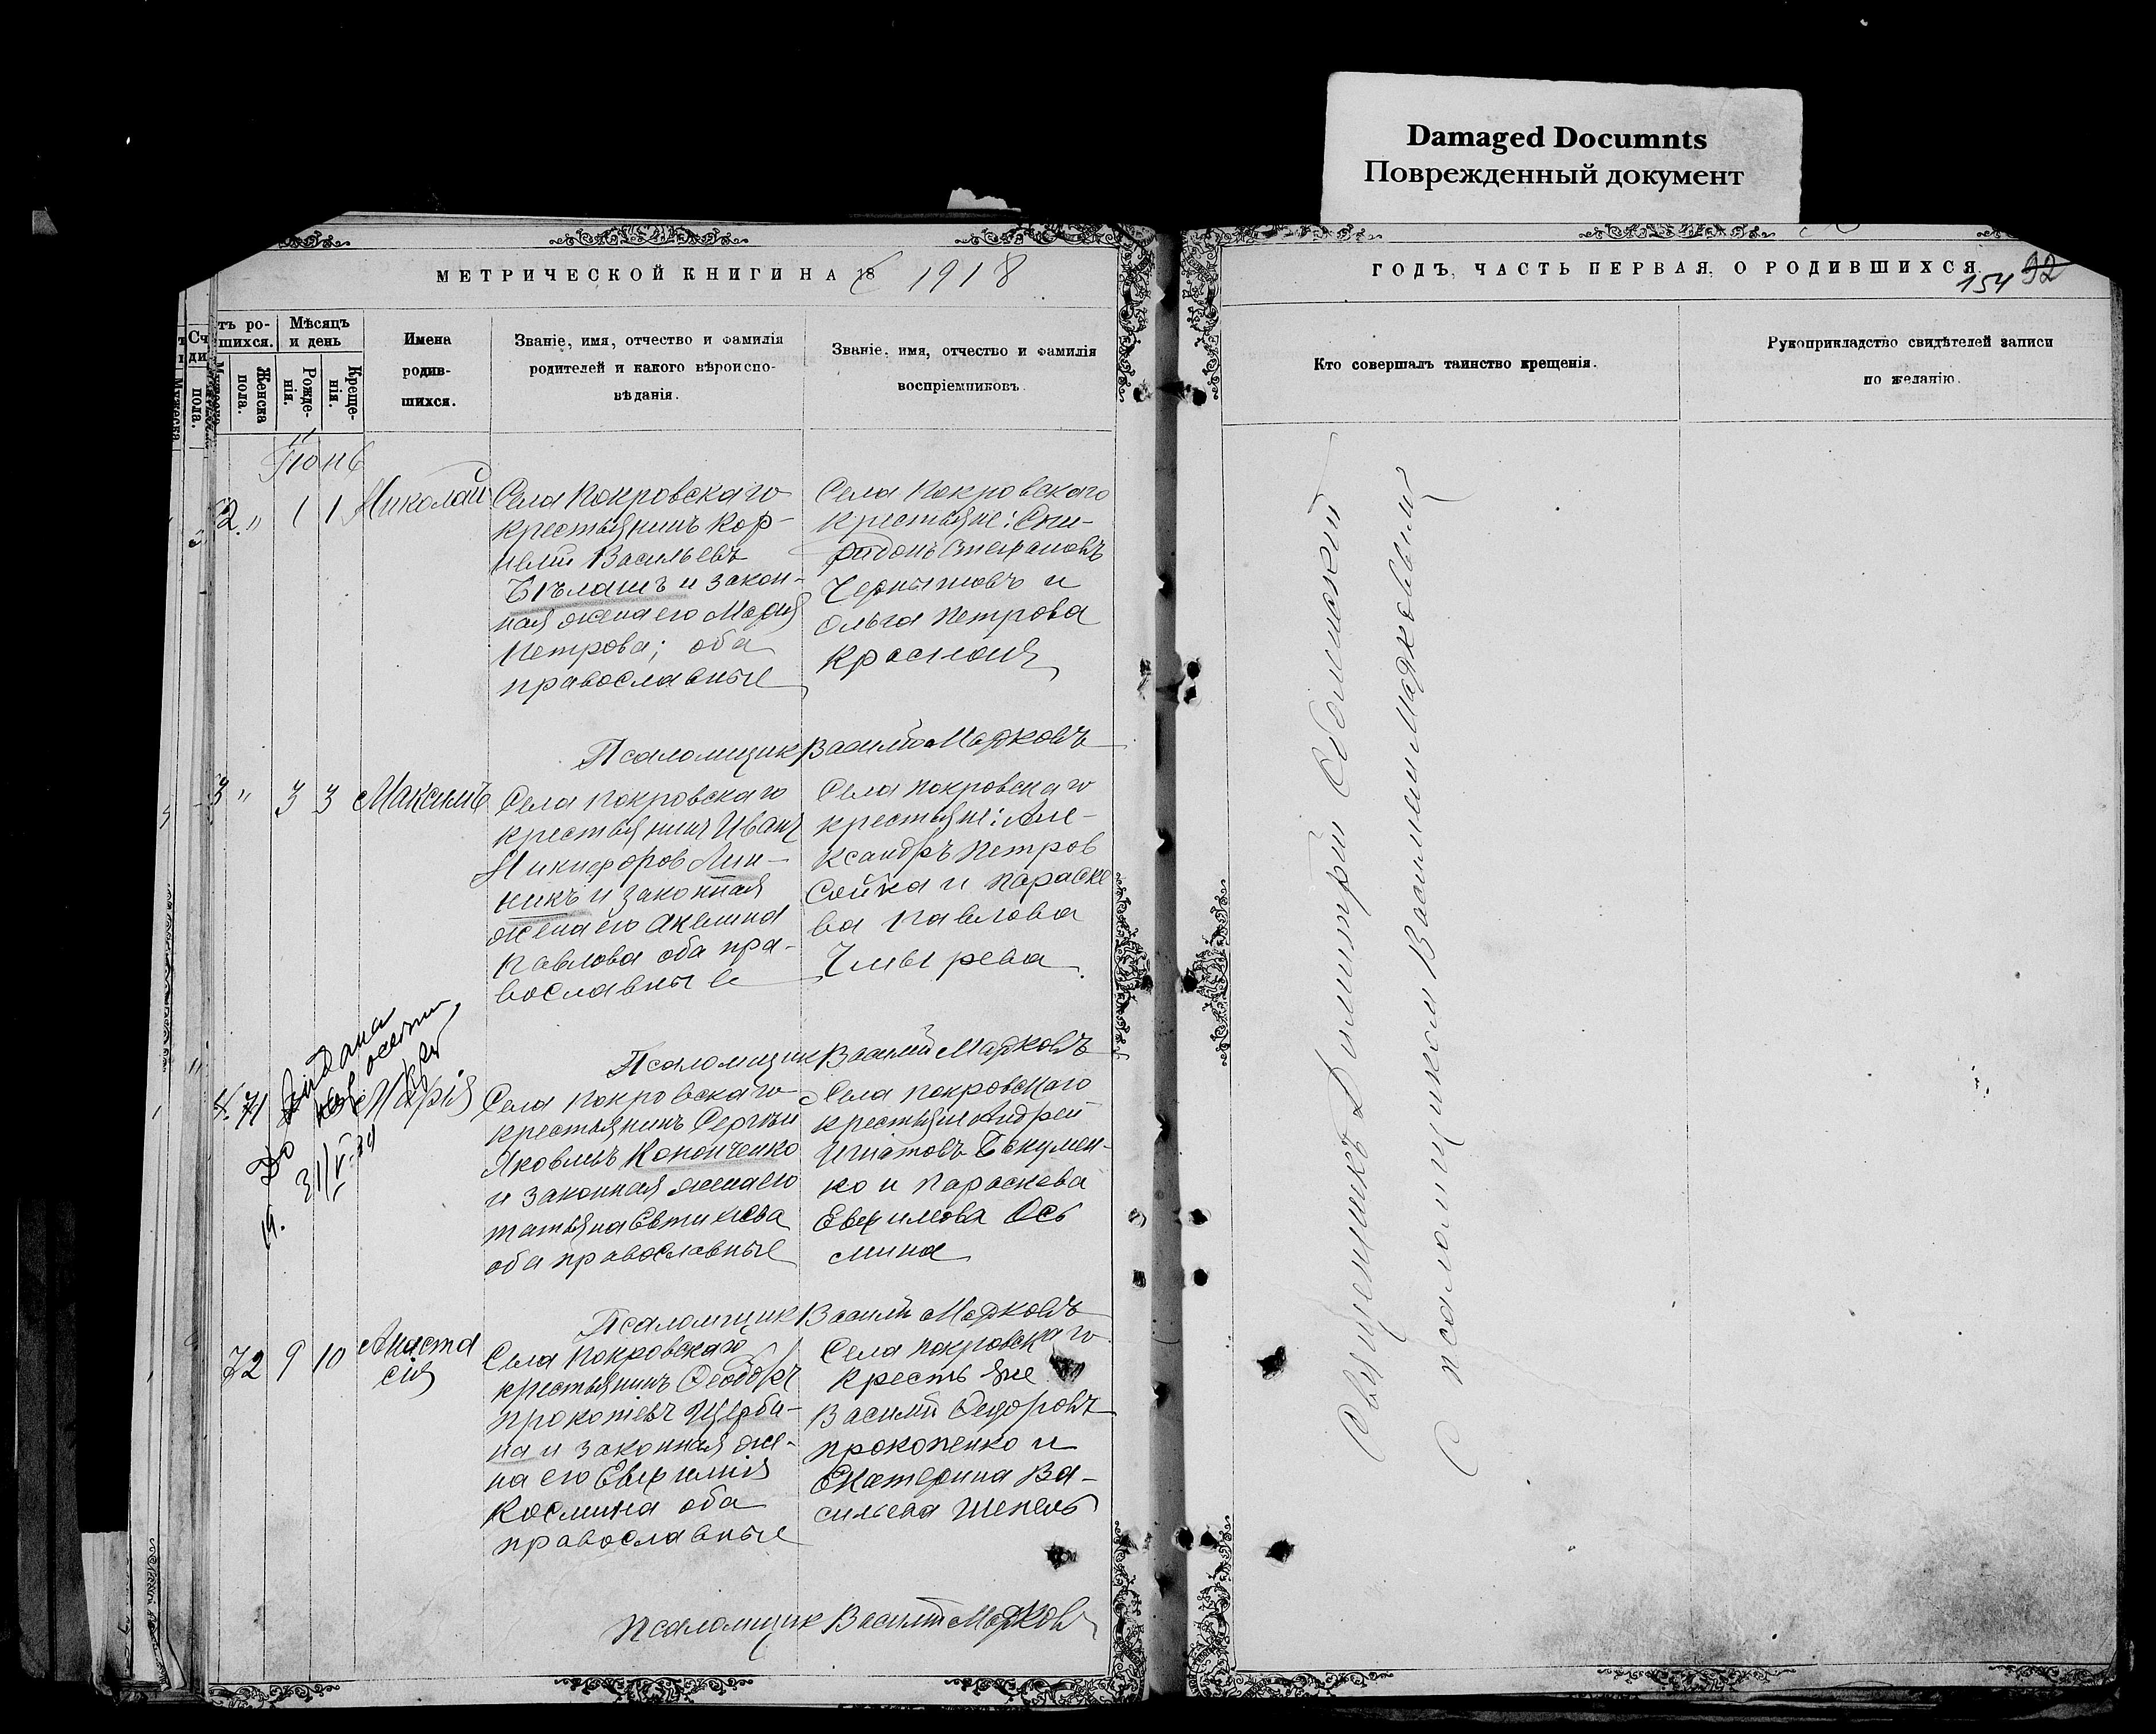 Damaged Documnts
Поврежденный документ
МЕТРИЧЕСКОЙ КНИГИ НА 18 1918
ть ро-
шихся.
Женска
пола.
Мѣсяцъ
и день
Рожде-
нія.
Креще-
нія.
Имена
родив-
шихся.
Званіе, имя, отчество и фамилія
родителей и какого вѣроиспо-
вѣданія.
Званіе, имя, отчество и фамилія
воспріемниковъ.
Іюнь
2. " 1 1 Николай
Села Покровскаго
крестьянинъ Кор-
нилій Васильевъ
Бѣлашъ и закон-
ная жена его Марія
Петрова; оба
православные
Села Покровскаго
крестьяне: Спи-
ридонъ Стефановъ
Чернышовъ и
Ольга Петрова
Красная
Псаломщик Василій Марковъ
3 " 3 3 Максимъ
Села Покровскаго
крестьянинъ Иванъ
Никифоров Лин-
никъ и законная
жена его Акелина
Павлова оба пра-
вославные
Села Покровскаго
крестьяне: Але-
ксандръ Петров
Сойка и Параске
ва Павлова
Чмырева
Псаломщик Василій Марковъ
71 Марія
31/V
Села Покровскаго
крестьянинъ Сергѣй
Яковлевъ Конопченко
и законная жена его
Татьяна Евтихіева
оба православные
Села Покровскаго
крестьяне Андрей
Игнатовъ Бакумен-
ко и Параскева
Евфимова Ось
мина
Псаломщик Василій Марковъ
72 9 10 Анаста
сія
Села Покровскаго
крестьянинъ Феодоръ
Прокопіевъ Щерби-
на и законная же-
на его Евфимія
Космина оба
православные
Села Покровскаго
крестьяне
Василій Федоровъ
Прокопенко и
Екатерина Ва-
сильева Шепель
Псаломщик Василій Марковъ
ГОДЪ, ЧАСТЬ ПЕРВАЯ, О РОДИВШИХСЯ.
154 92
Кто совершалъ таинство крещенія.
Рукоприкладство свидѣтелей записи
по желанію.
Священникъ Димитрій
С псаломщиком Василіем Марковым